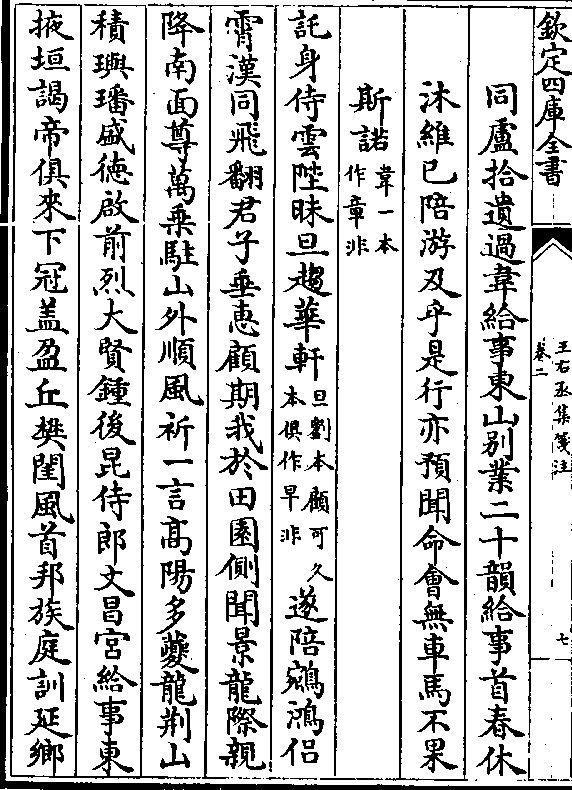 欽定四庫全書
王右丞集箋注
卷二
七
同盧拾遺過韋給事東山别業二十韻給事首春休
沐維已陪游及乎是行亦預聞命會無車馬不果
斯諾韋一本作章非
託身侍雲陛昧旦趨華軒旦劉本顧可久本俱作早非遂陪鵷鴻侣
霄漢同飛翻君子垂惠顧期我於田園側聞景龍際親
降南面尊萬乗駐山外順風祈一言髙陽多夔龍荆山
積璵璠盛徳啟前烈大賢鍾後昆侍郎文昌宮給事東
掖垣謁帝俱來下冠盖盈丘樊閨風首邦族庭訓延鄉